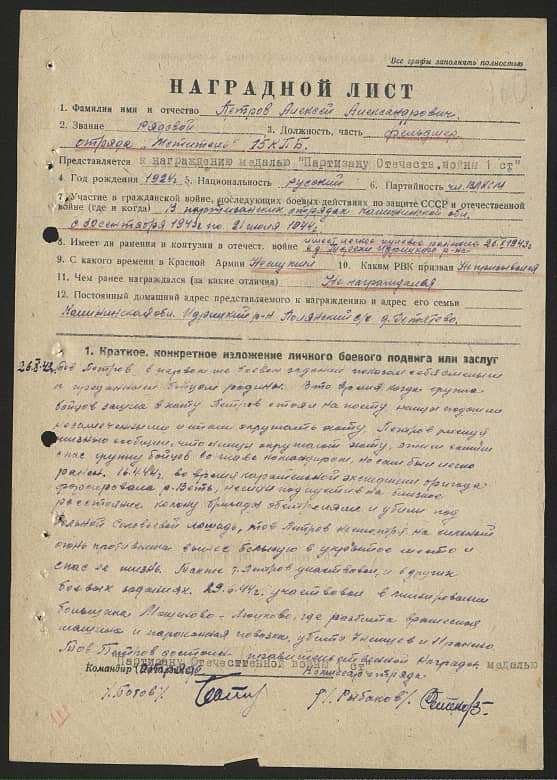 Все графы заполнять полностью
НАГРАДНОЙ ЛИСТ
1. Фамилия имя и отчество Петров Алексей Александрович
2. Звание Рядовой 3. Должность, часть Фельдшер
отряда "Мститель" 15КПБ.
Представляется к награждению медалью "Партизану Отечеств.войны 1 ст"
4. Год рождения 1924г. 5. Национальность русский 6. Партийность чл.ВЛКСМ
7. Участие в гражданской войне, последующих боевых действиях по защите СССР и отечественной
войне (где и когда) В партизанских отрядах Калининской обл.
с 30 сентября 1943г по 21 июля 1944г.
8. Имеет ли ранения и контузии в отечест. войне имеет легкое пулевое ранение 26.X.1943г
в д. Идрицкого р-на
9. С какого времени в Красной Армии Не служил 10. Каким РВК призван Не призывался
11. Чем ранее награждался (за какие отличия) Не награждался
12. Постоянный домашний адрес представляемого к награждению и адрес его семьи
Калининская обл. Идрицкий р-н Полянский с/с д.
1. Краткое, конкретное изложение личного боевого подвига или заслуг
26.X.43г. тов Петров в первом же боевом задании показал себя смелым
и преданным бойцом родины. В то время когда группа
бойцов зашла в хату Петров стоял на посту, немцы подошли
незамеченными и стали окружать хату. Петров рискуя
жизнью сообщил, что немцы окружают хату, этим самым
спас группу бойцов во главе командиром, но сам был легко
ранен. 16.4.44г. во время карательной экспедиции бригада
форсировала р. немцы подпустив на близкое
расстояние колону бригады обстреляли и убили под
больной лошадь, тов Петров несмотря на сильный
огонь противника вынес больную в укрытое место и
спас ей жизнь. Также т. Петров участвовал и в других
боевых заданиях. 29.6.44г. участвовал в минировании
большака где разбита вражеская
машина и пароконная повозка, убито 7 немцев и
Тов Петров достоин правительственной Награды медалью
Партизану Отечественной войны 1 ст
Командир отряда Комиссар отряда
/Рыбаков/